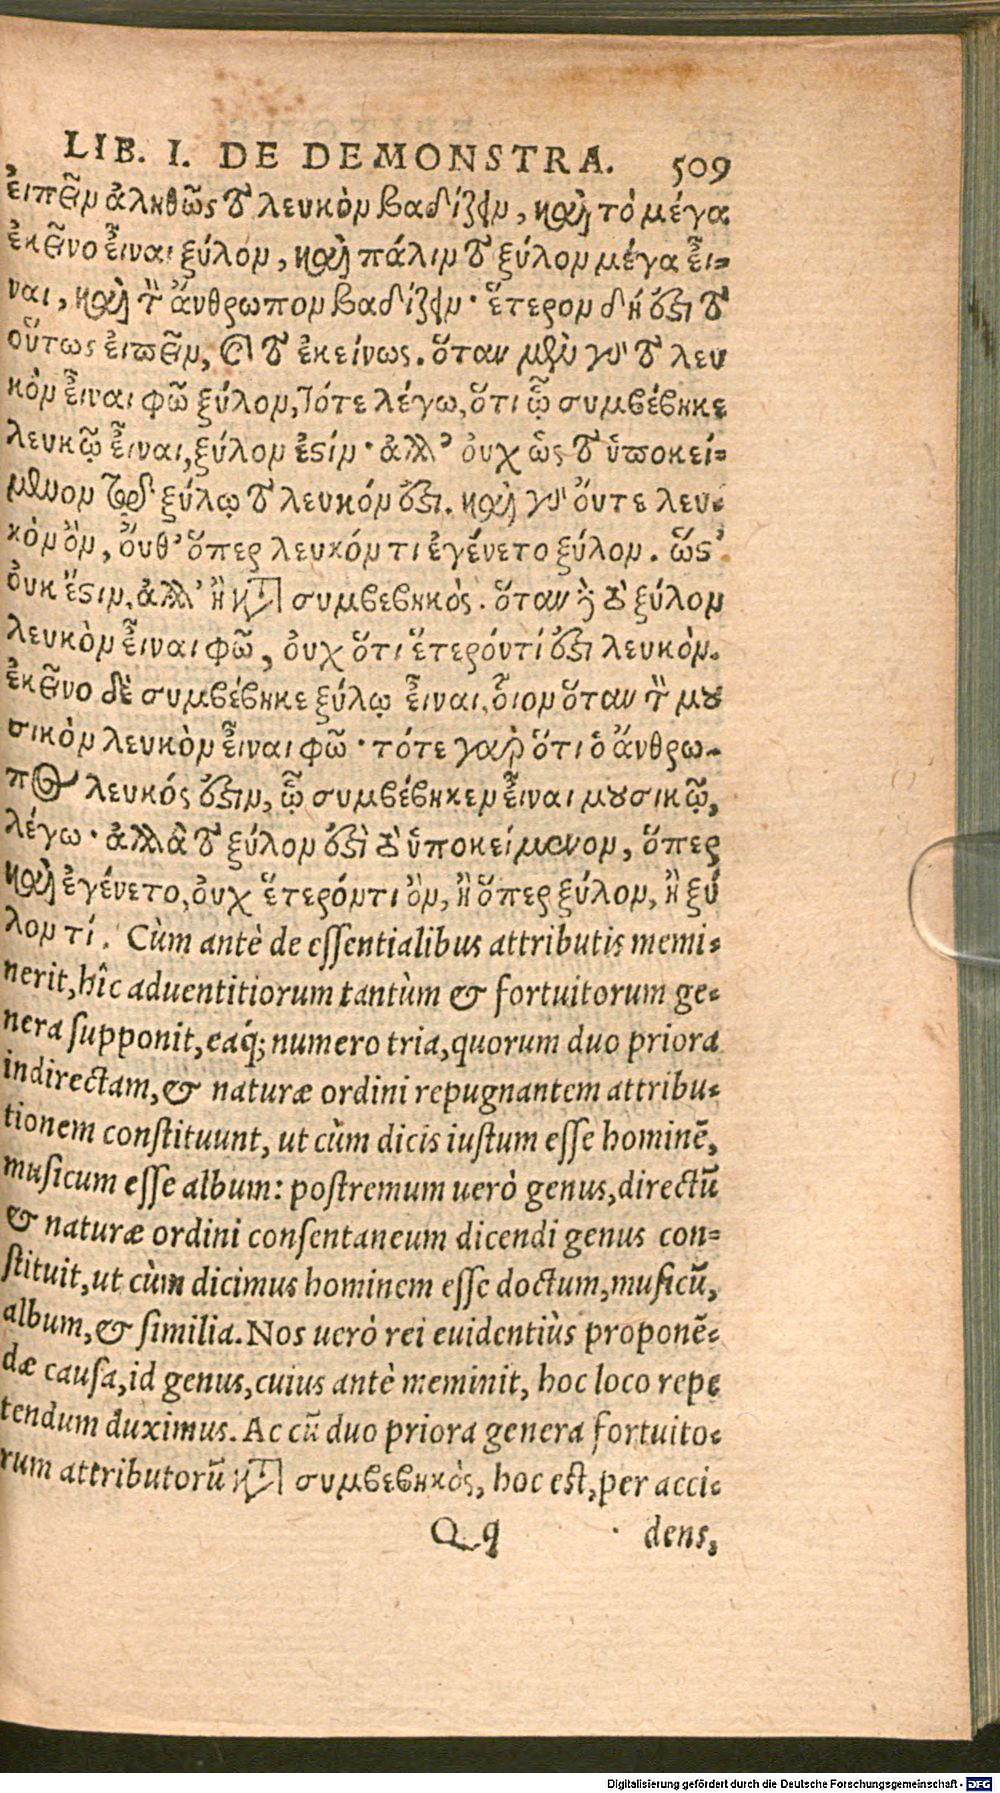 LIB. I. DE DEMONSTRA. 509
ἐιπεῖν ἀληθῶς τὸ λευκὸν βαδίζειν, καὶ τὸ μέγα
ἐκεῖνο εἶναι ξύλον, καὶ πάλιν τὸ ξύλον μέγα εἶ-
ναι, καὶ τὸν ἄνθρωπον βαδίζειν· ἕτερον δή ἐστι τὸ
οὕτως ἐιπεῖν, καὶ τὸ ἐκείνως. ὅταν μὲν γὰρ τὸ λευ
κὸν εἶναι φῶ ξύλον, τότε λέγω, ὅτι ᾧ συμβέβηκε
λευκῷ εἶναι, ξύλον ἐστίν· ἀλλ' οὐχ ὡς τὸ ὑποκεί-
μενον τῷ ξύλῳ τὸ λευκόν ἐστι. καὶ γὰρ ὄυτε λευ-
κὸν ὂν, ὄυθ' ὅπερ λευκόν τι ἐγένετο ξύλον. ὥστ'
ὀυκ ἔστιν, ἀλλ' ἢ κατὰ συμβεβηκὸς. ὅταν δὲ τὸ ξύλον
λευκὸν εἶναι φῶ, ὀυχ ὅτι ἕτερόν τί ἐστι λευκὸν.
ἐκεῖνο δὲ συμβέβηκε ξύλῳ εἶναι, οἷον ὅταν τὸν μου
σικὸν λευκὸν εἶναι φῶ· τότε γὰρ ὅτι ὁ ἄνθρω-
πος λευκός ἐστιν, ᾧ συμβέβηκεν εἶναι μουσικῷ,
λέγω· ἀλλὰ τὸ ξύλον ἐστὶ τὸ ὑποκείμενον, ὅπερ
καὶ ἐγένετο, ὀυχ ἕτερόν τι ὂν, ἢ ὅπερ ξύλον, ἢ ξύ
λον τί. Cùm antè de essentialibus attributis memi-
nerit, hîc aduentitiorum tantùm & fortuitorum ge-
nera supponit, eaq́; numero tria, quorum duo priora
indirectam, & naturæ ordini repugnantem attribu-
tionem constituunt, ut cùm dicis iustum esse hominē,
musicum esse album: postremum uerò genus, directū
& naturæ ordini consentaneum dicendi genus con-
stituit, ut cùm dicimus hominem esse doctum, musicū,
album, & similia. Nos uerò rei euidentiùs proponē-
dæ causa, id genus, cuius antè meminit, hoc loco repe
tendum duximus. Ac cū duo priora genera fortuito-
rum attributorū κατὰ συμβεβηκὸς, hoc est, per acci-
Qq dens,
Digitalisierung gefördert durch die Deutsche Forschungsgemeinschaft - DFG